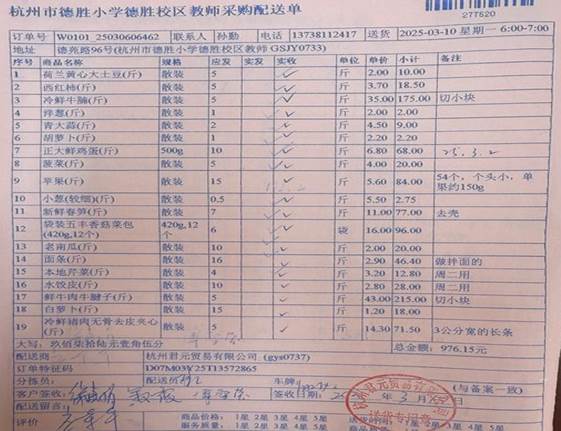 277620
杭州市德胜小学德胜校区教师采购配送单
订单号 W0101_25030606462 联系人 孙勤 电话 13738112417 送货 2025-03-10 星期一 6:00-7:00
地址 德苑路96号(杭州市德胜小学德胜校区教师 GSJY0733)
序号 商品名称 规格 应发 实发 实收 单位 单价 小计 备注
1 荷兰黄心大土豆(斤) 散装 5 斤 2.00 10.00
2 西红柿(斤) 散装 5 斤 3.70 18.50
3 冷鲜牛腩(斤) 散装 5 斤 35.00 175.00 切小块
4 洋葱(斤) 散装 1 斤 2.00 2.00
5 青大蒜(斤) 散装 2 斤 4.50 9.00
6 胡萝卜(斤) 散装 1 斤 2.20 2.20
7 正大鲜鸡蛋(斤) 500g 10 斤 6.80 68.00
8 菠菜(斤) 散装 5 斤 4.00 20.00
9 苹果(斤) 散装 15 斤 5.60 84.00 54个，个头小，单果约150g
10 小葱(较细)(斤) 散装 0.5 斤 5.50 2.75
11 新鲜春笋(斤) 散装 7 斤 11.00 77.00 去壳
12 袋装五丰香菇菜包(420g,12个) 420g,12个 6 袋 16.00 96.00
13 老南瓜(斤) 散装 10 斤 2.00 20.00
14 面条(斤) 散装 16 斤 2.90 46.40 做拌面的
15 本地芹菜(斤) 散装 4 斤 3.20 12.80 周二用
16 水饺皮(斤) 散装 10 斤 2.80 28.00 周二用
17 鲜牛肉牛腱子(斤) 散装 5 斤 43.00 215.00 切小块
18 白萝卜(斤) 散装 15 斤 1.20 18.00
19 冷鲜猪肉无骨去皮夹心(斤) 散装 5 斤 14.30 71.50 3公分宽的长条
大写：玖佰柒拾陆元壹角伍分 总金额：976.15元
配送商 杭州君元贸易有限公司 (gys0737)
订单特征码 D07M03Y25T13572865
分拣员： 配送员 车牌： (与备案一致)
客户签收： 签收日期： 年 3月
配送留言：
评价 商品价格： 1星 2星 3星 4星 5星
服务质量： 1星 2星 3星 4星 5星